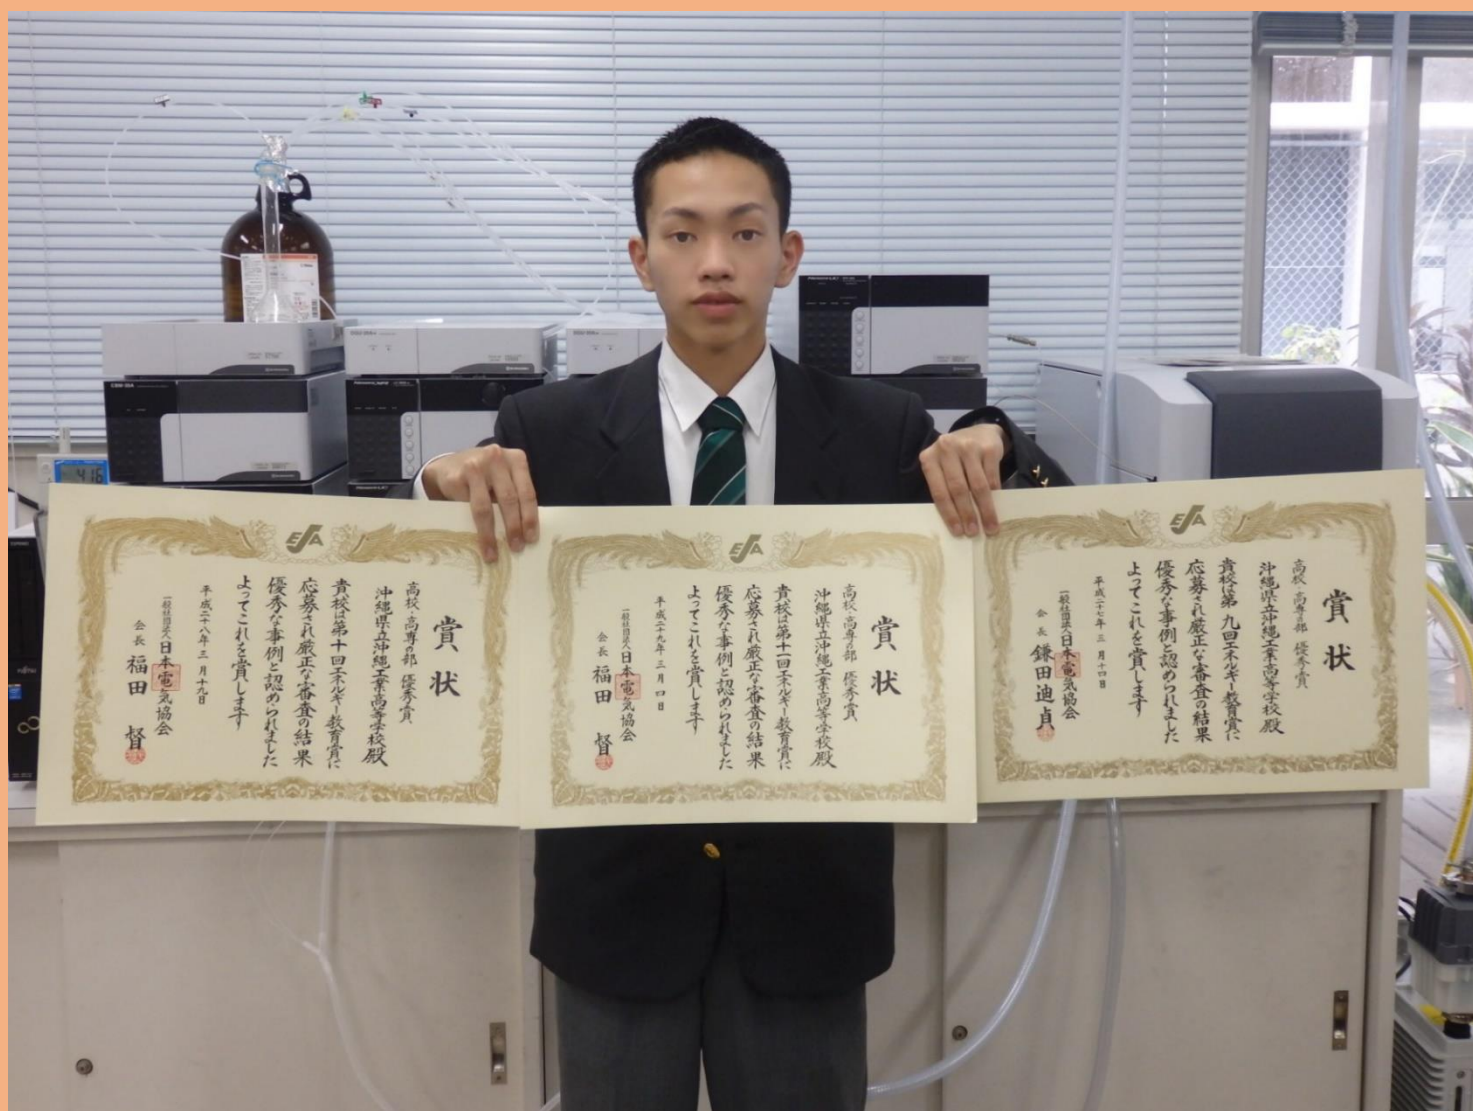 賞状
高校・高専の部 優秀賞
沖縄県立沖縄工業高等学校殿
貴校は第十回エネルギー教育賞に
応募され厳正な審査の結果
優秀な事例と認められました
よってこれを賞します
平成二十八年三月十九日
一般社団法人日本電気協会
会長 福田 督
ESA
賞状
高校・高専の部 優秀賞
沖縄県立沖縄工業高等学校殿
貴校は第十一回エネルギー教育賞に
応募され厳正な審査の結果
優秀な事例と認められました
よってこれを賞します
平成二十九年三月四日
一般社団法人日本電気協会
会長 福田 督
賞状
高校・高専の部 優秀賞
沖縄県立沖縄工業高等学校殿
貴校は第九回エネルギー教育賞に
応募され厳正な審査の結果
優秀な事例と認められました
よってこれを賞します
平成二十七年三月十四日
一般社団法人日本電気協会
会長 鎌田迪貞
CBM-20A
416